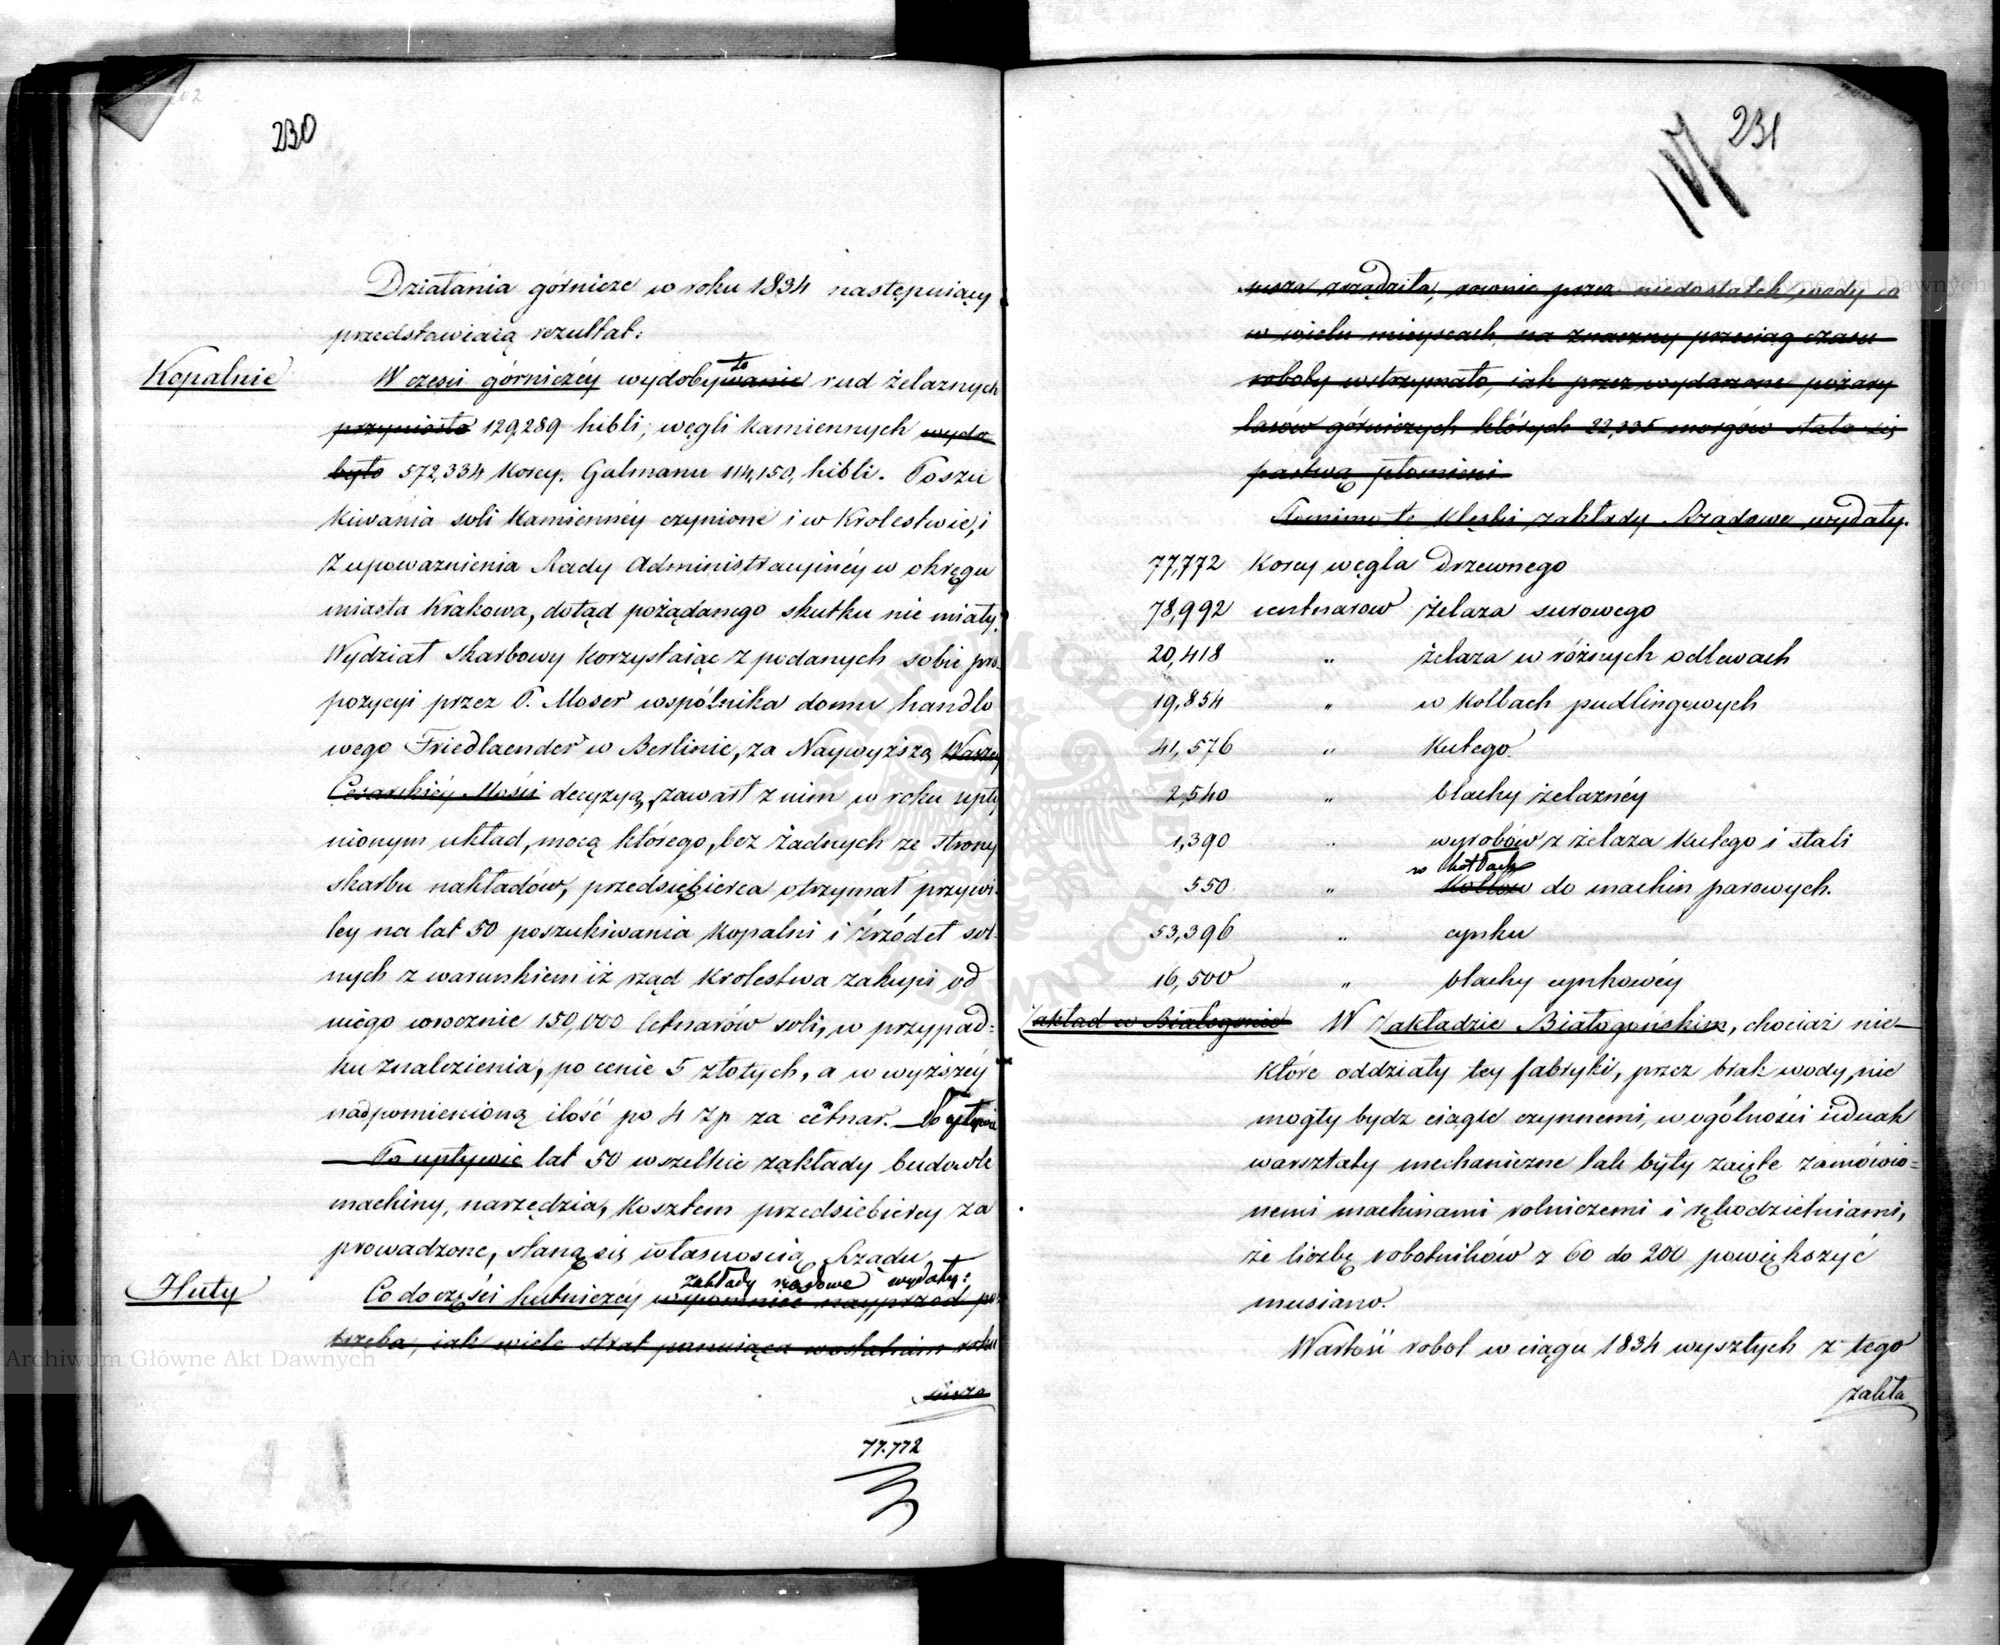 230
Działania górnicze w roku 1834 następuiący
przedstawiaią rezultat:
Kopalnie
W części górniczéy wydobywanie to rud żelaznych
przyniosło 129,289 kibli, węgli kamiennych wydo
było 572,334 korcy, Galmanu 114,150, kibli. Poszu
kiwania soli kamiennéy czynione i w Krolestwie, i
z upoważnienia Rady Administracyinéy w okręgu
miasta Krakowa, dotąd pożądanego skutku nie miały.
Wydział skarbowy korzystaiąc z podanych sobie pro
pozycyi przez P. Moser wspólnika domu handlo
wego Friedlaender w Berlinie, za Naywyższą Waszey
Cesarskiéy Mości decyzyą, zawarł z nim w roku upły
nionym układ, mocą którego, bez żadnych ze strony
skarbu nakładów, przedsiębierca otrzymał przywi-
ley na lat 50 poszukiwania kopalni i źrzódeł sol-
nych z warunkiem iż rząd Krolestwa zakupi od
niego corocznie 150,000 Cetnarów soli, w przypad=
ku znalezienia, po cenie 5 złotych, a w wyższéy
nadpomienioną ilość po 4 zp za cetnar. Po upływie
Po upływie lat 50 wszelkie zakłady budowle
machiny, narzędzia, kosztem przedsiebiercy za
prowadzone, staną się własnością Rządu.
Huty
zakłady rządowe wydały:
Co do części hutniczéy wspomnieć nayprzod po
trzeba, iak wiele strat panuiąca w ostatnim roku
susza
77.772
231
susza zrządziła, rownie przez niedostatek wody co
w wielu mieyscach na znaczny przeciąg czasu
roboty wstrzymało, iak przez wydarzone pożary
lasów górniczych których 22,335 morgów stało się
pastwą płomieni
Pomimo te klęski zakłady Rządowe wydały.
77,772 korcy węgla Drzewnego
78,992 centnarow żelaza surowego
20,418 " żelaza w różnych odlewach
19,854 " w kolbach pudlingowych
41,576 " kutego
2,540 " blachy żelaznéy
1,390 " wyrobów z żelaza kutego i stali
w kotłach
550 " Kotłow do machin parowych.
53,396 " cynku
16,500 " blachy cynkowéy
Zakład w Białogonie
W Zakładzie Białogońskim, chociaż nie-
które oddziały tey fabryki, przez brak wody, nie
mogły bydz ciągle czynnemi, w ogólności iednak
warsztaty mechaniczne tak były zaięte zamówio=
nemi machinami rolniczemi i rękodzielniami,
że liczbę robotników z 60 do 200 powiększyć
musiano.
Wartość robot w ciągu 1834 wyszłych z tego
zakła
Archiwum Główne Akt Dawnych
Archiwum Główne Akt Dawnych
ARCHIWUM GŁÓWNE AKT DAWNYCH